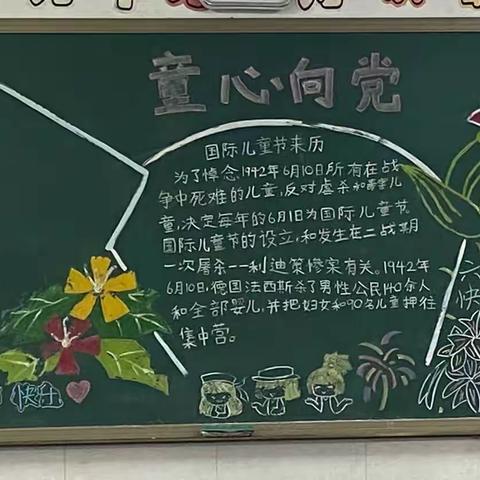 童心向党
国际儿童节来历
为了悼念1942年6月10日所有在战
争中死难的儿童,反对虐杀和毒害儿
童,决定每年的6月1日为国际儿童节。
国际儿童节的设立,和发生在二战期
一次屠杀--利迪策惨案有关。1942年
6月10日,德国法西斯杀了男性公民140余人
和全部婴儿,并把妇女和90名儿童押往
集中营。
六
快
快壮